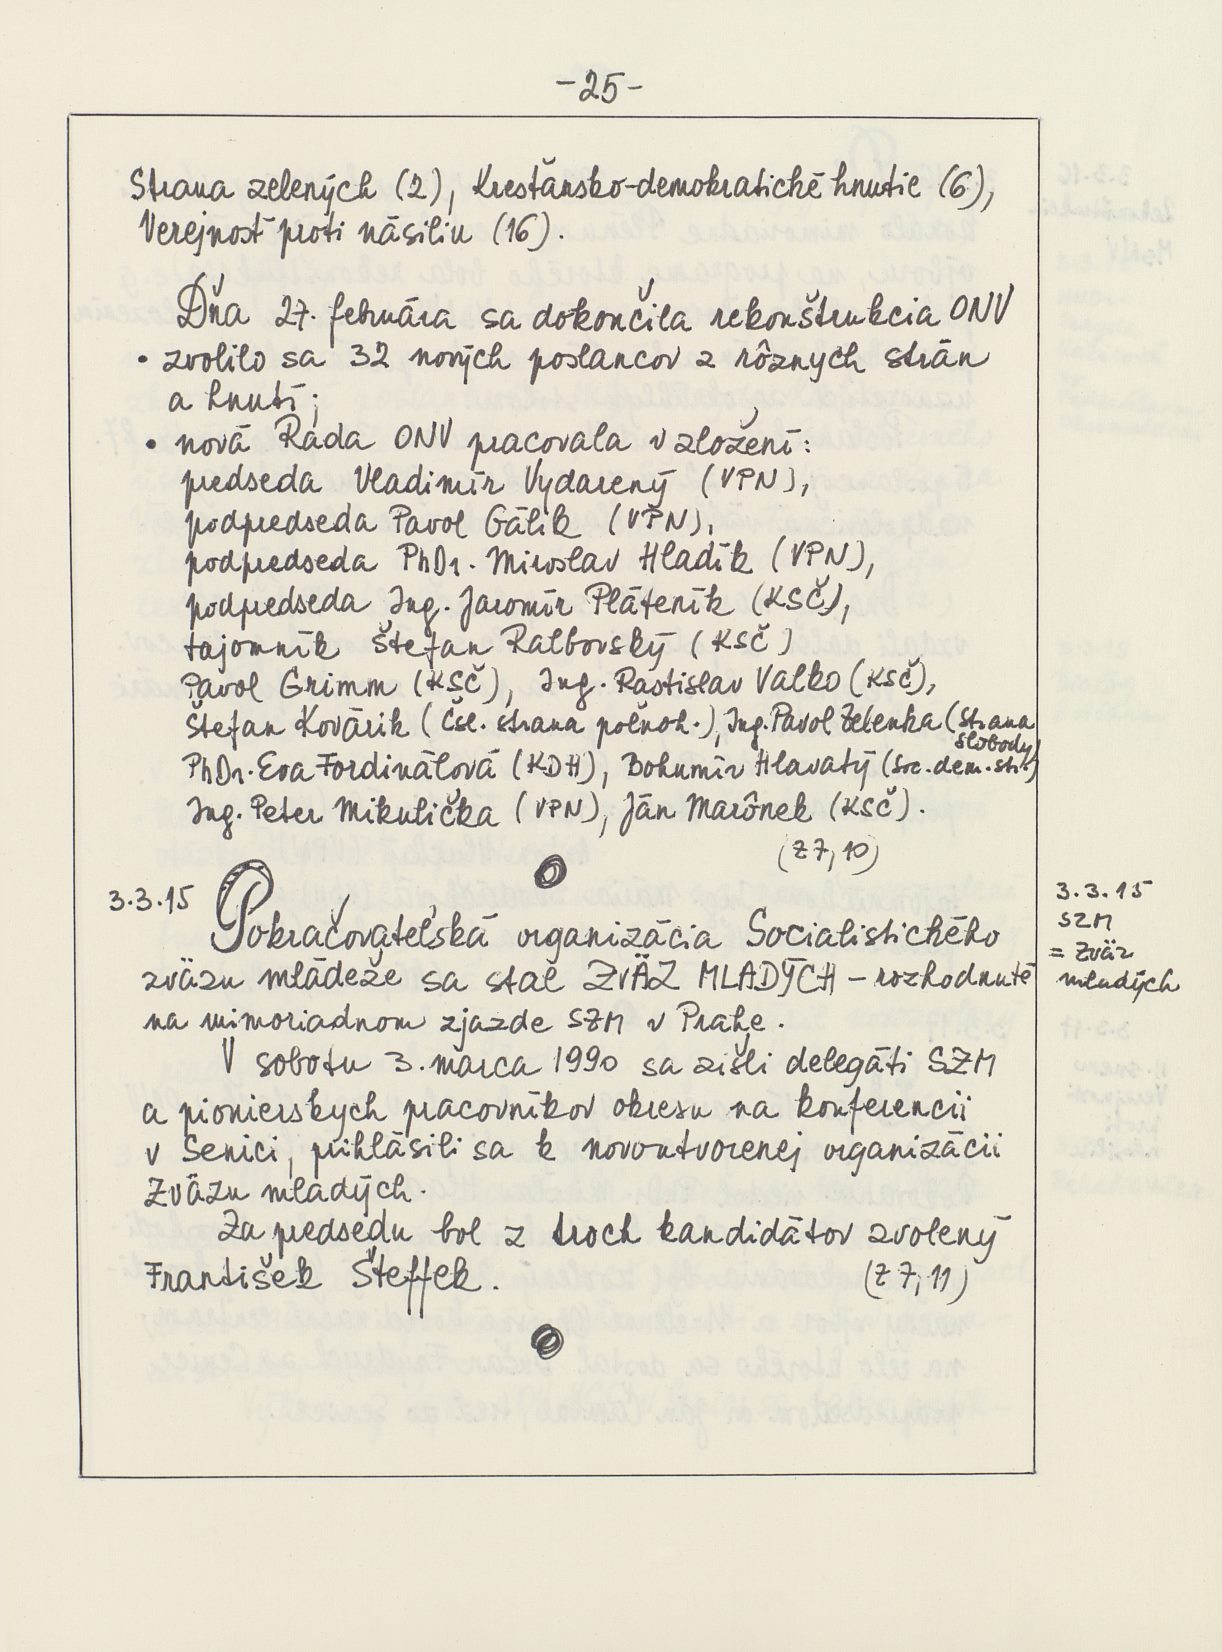 -25-
Strana zelených (2), Kresťansko-demokratické hnutie (6),
Verejnosť proti násiliu (16).
Dňa 27. februára sa dokončila rekonštrukcia ONV
• zvolilo sa 32 nových poslancov z rôznych strán
a hnutí;
• nová Rada ONV pracovala v zložení:
predseda Vladimír Vydarený (VPN),
podpredseda Pavol Gálik (VPN),
podpredseda PhDr. Miroslav Hladík (VPN),
podpredseda Ing. Jaromír Pláteník (KSČ),
tajomník Štefan Ralbovský (KSČ)
Pavol Grimm (KSČ), Ing. Rastislav Valko (KSČ),
Štefan Kovárik (Čsl. strana poľnoh.), Ing. Pavol Zelenka (Strana
slobody)
PhDr. Eva Fordinálová (KDH), Bohumír Hlavatý (soc. dem. str.)
Ing. Peter Mikulička (VPN), Ján Marônek (KSČ).
(Z 7, 10)
3.3.15 Pokračovateľská organizácia Socialistického
zväzu mládeže sa stal ZVÄZ MLADÝCH – rozhodnuté
na mimoriadnom zjazde SZM v Prahe.
V sobotu 3. marca 1990 sa zišli delegáti SZM
a pionierskych pracovníkov okresu na konferencii
v Senici, prihlásili sa k novoutvorenej organizácii
Zväzu mladých.
Za predsedu bol z troch kandidátov zvolený
František Šteffek. (Z 7, 11)
3.3.15
SZM
= Zväz
mladých